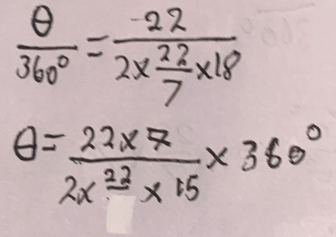 θ/360° = 22/(2×22/7×18)
θ = (22×7)/(2×22×15) × 360°